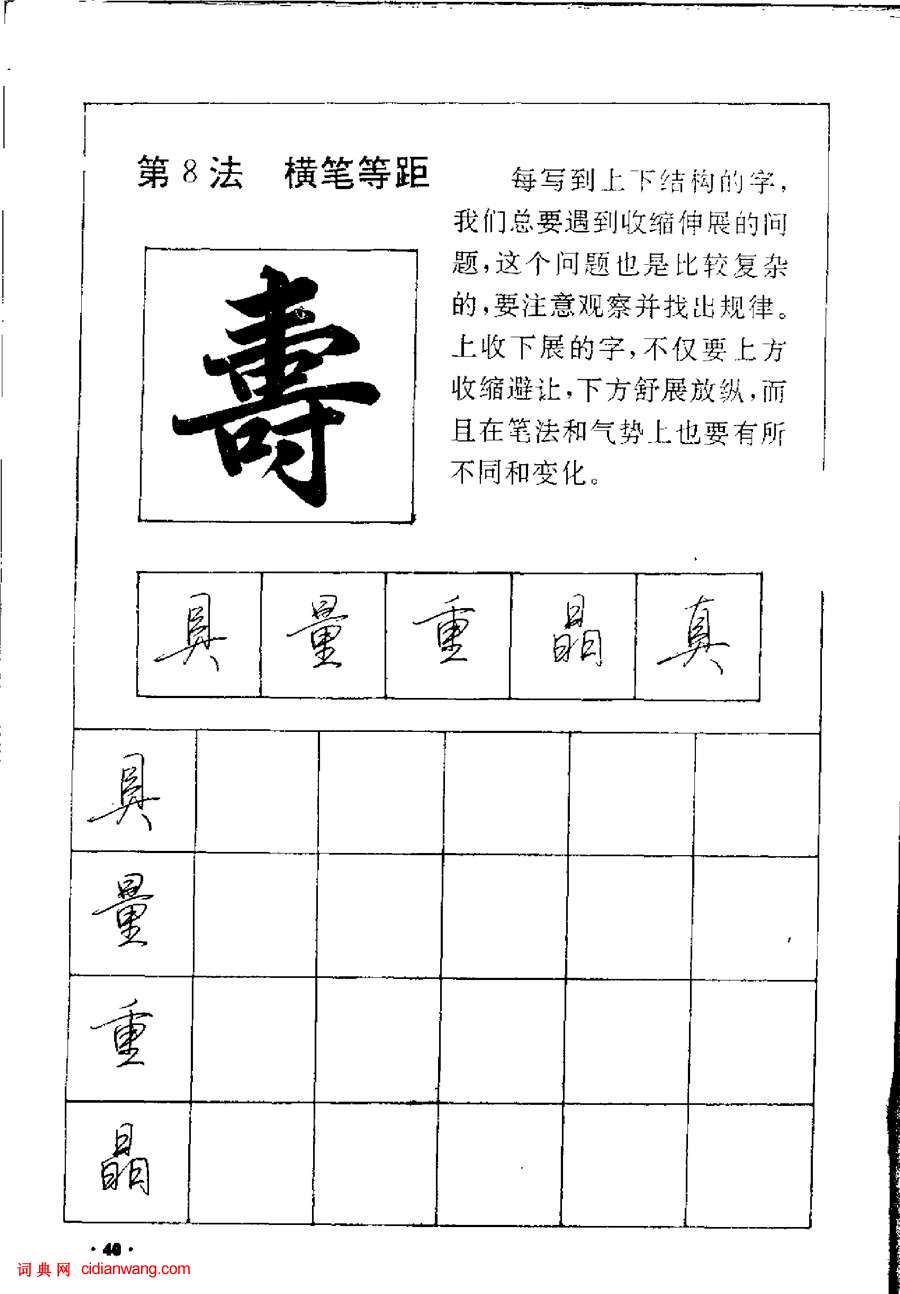 第8法 横笔等距
每写到上下结构的字,
我们总要遇到收缩伸展的问
题,这个问题也是比较复杂
的,要注意观察并找出规律。
上收下展的字,不仅要上方
收缩避让,下方舒展放纵,而
且在笔法和气势上也要有所
不同和变化。
壽
具 量 重 晶 真
具
量
重
晶
·40·
词典网 cidianwang.com